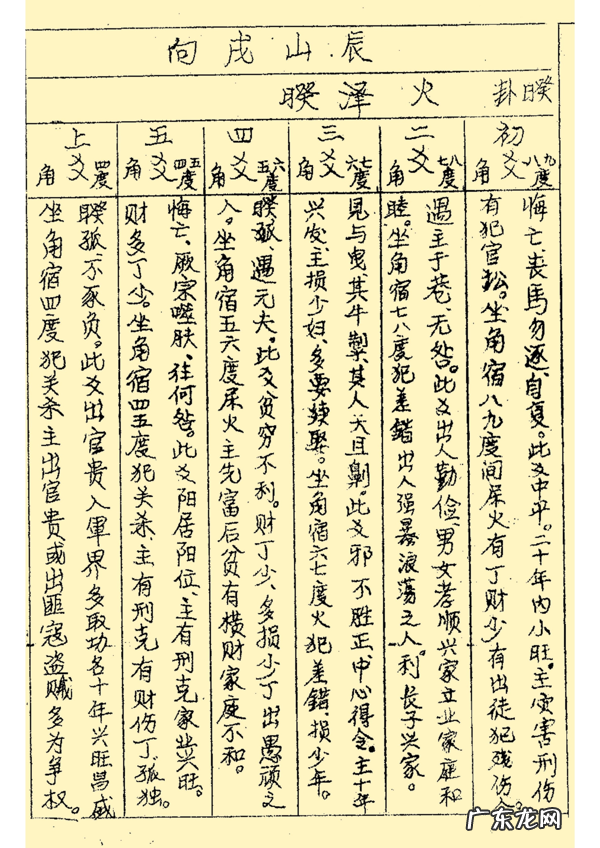 辰山戌向
睽卦 火泽睽
初爻 角八九度
悔亡、丧馬勿逐、自复。此爻中平。二十年内小旺。主灾害刑伤
有犯官讼。坐角宿八九度间屎火有丁财少有出徒犯残伤
二爻 角七八度
遇主于巷、无咎。此爻出人勤俭、男女孝顺兴家立业家庭和
睦。坐角宿七八度犯差錯出人强暴浪荡之人。利長子兴家。
三爻 角六七度
見与曳、其牛掣、其人天且劓。此爻邪不胜正、中心得令。主十年
兴发、主损少妇、多要续娶。坐角宿六七度火犯差錯、损少年。
四爻 角五六度
睽孤、遇元夫。此爻贫穷不利。财丁少、多损小丁出愚顽之
人。坐角宿五六度屎火主先富后贫有横财家庭不和。
五爻 角四五度
悔亡、厥宗噬肤、往何咎。此爻阳居阳位、主有刑克家业兴旺。
财多丁少。坐角宿四五度犯关杀主有刑克有财伤丁孤独。
上爻 角四度
睽孤、不豕负。此爻出官貴入軍界多取功名十年兴旺昌盛
坐角宿四度犯关杀主出官貴或出匪寇盗贼多为争权。
广东龙网